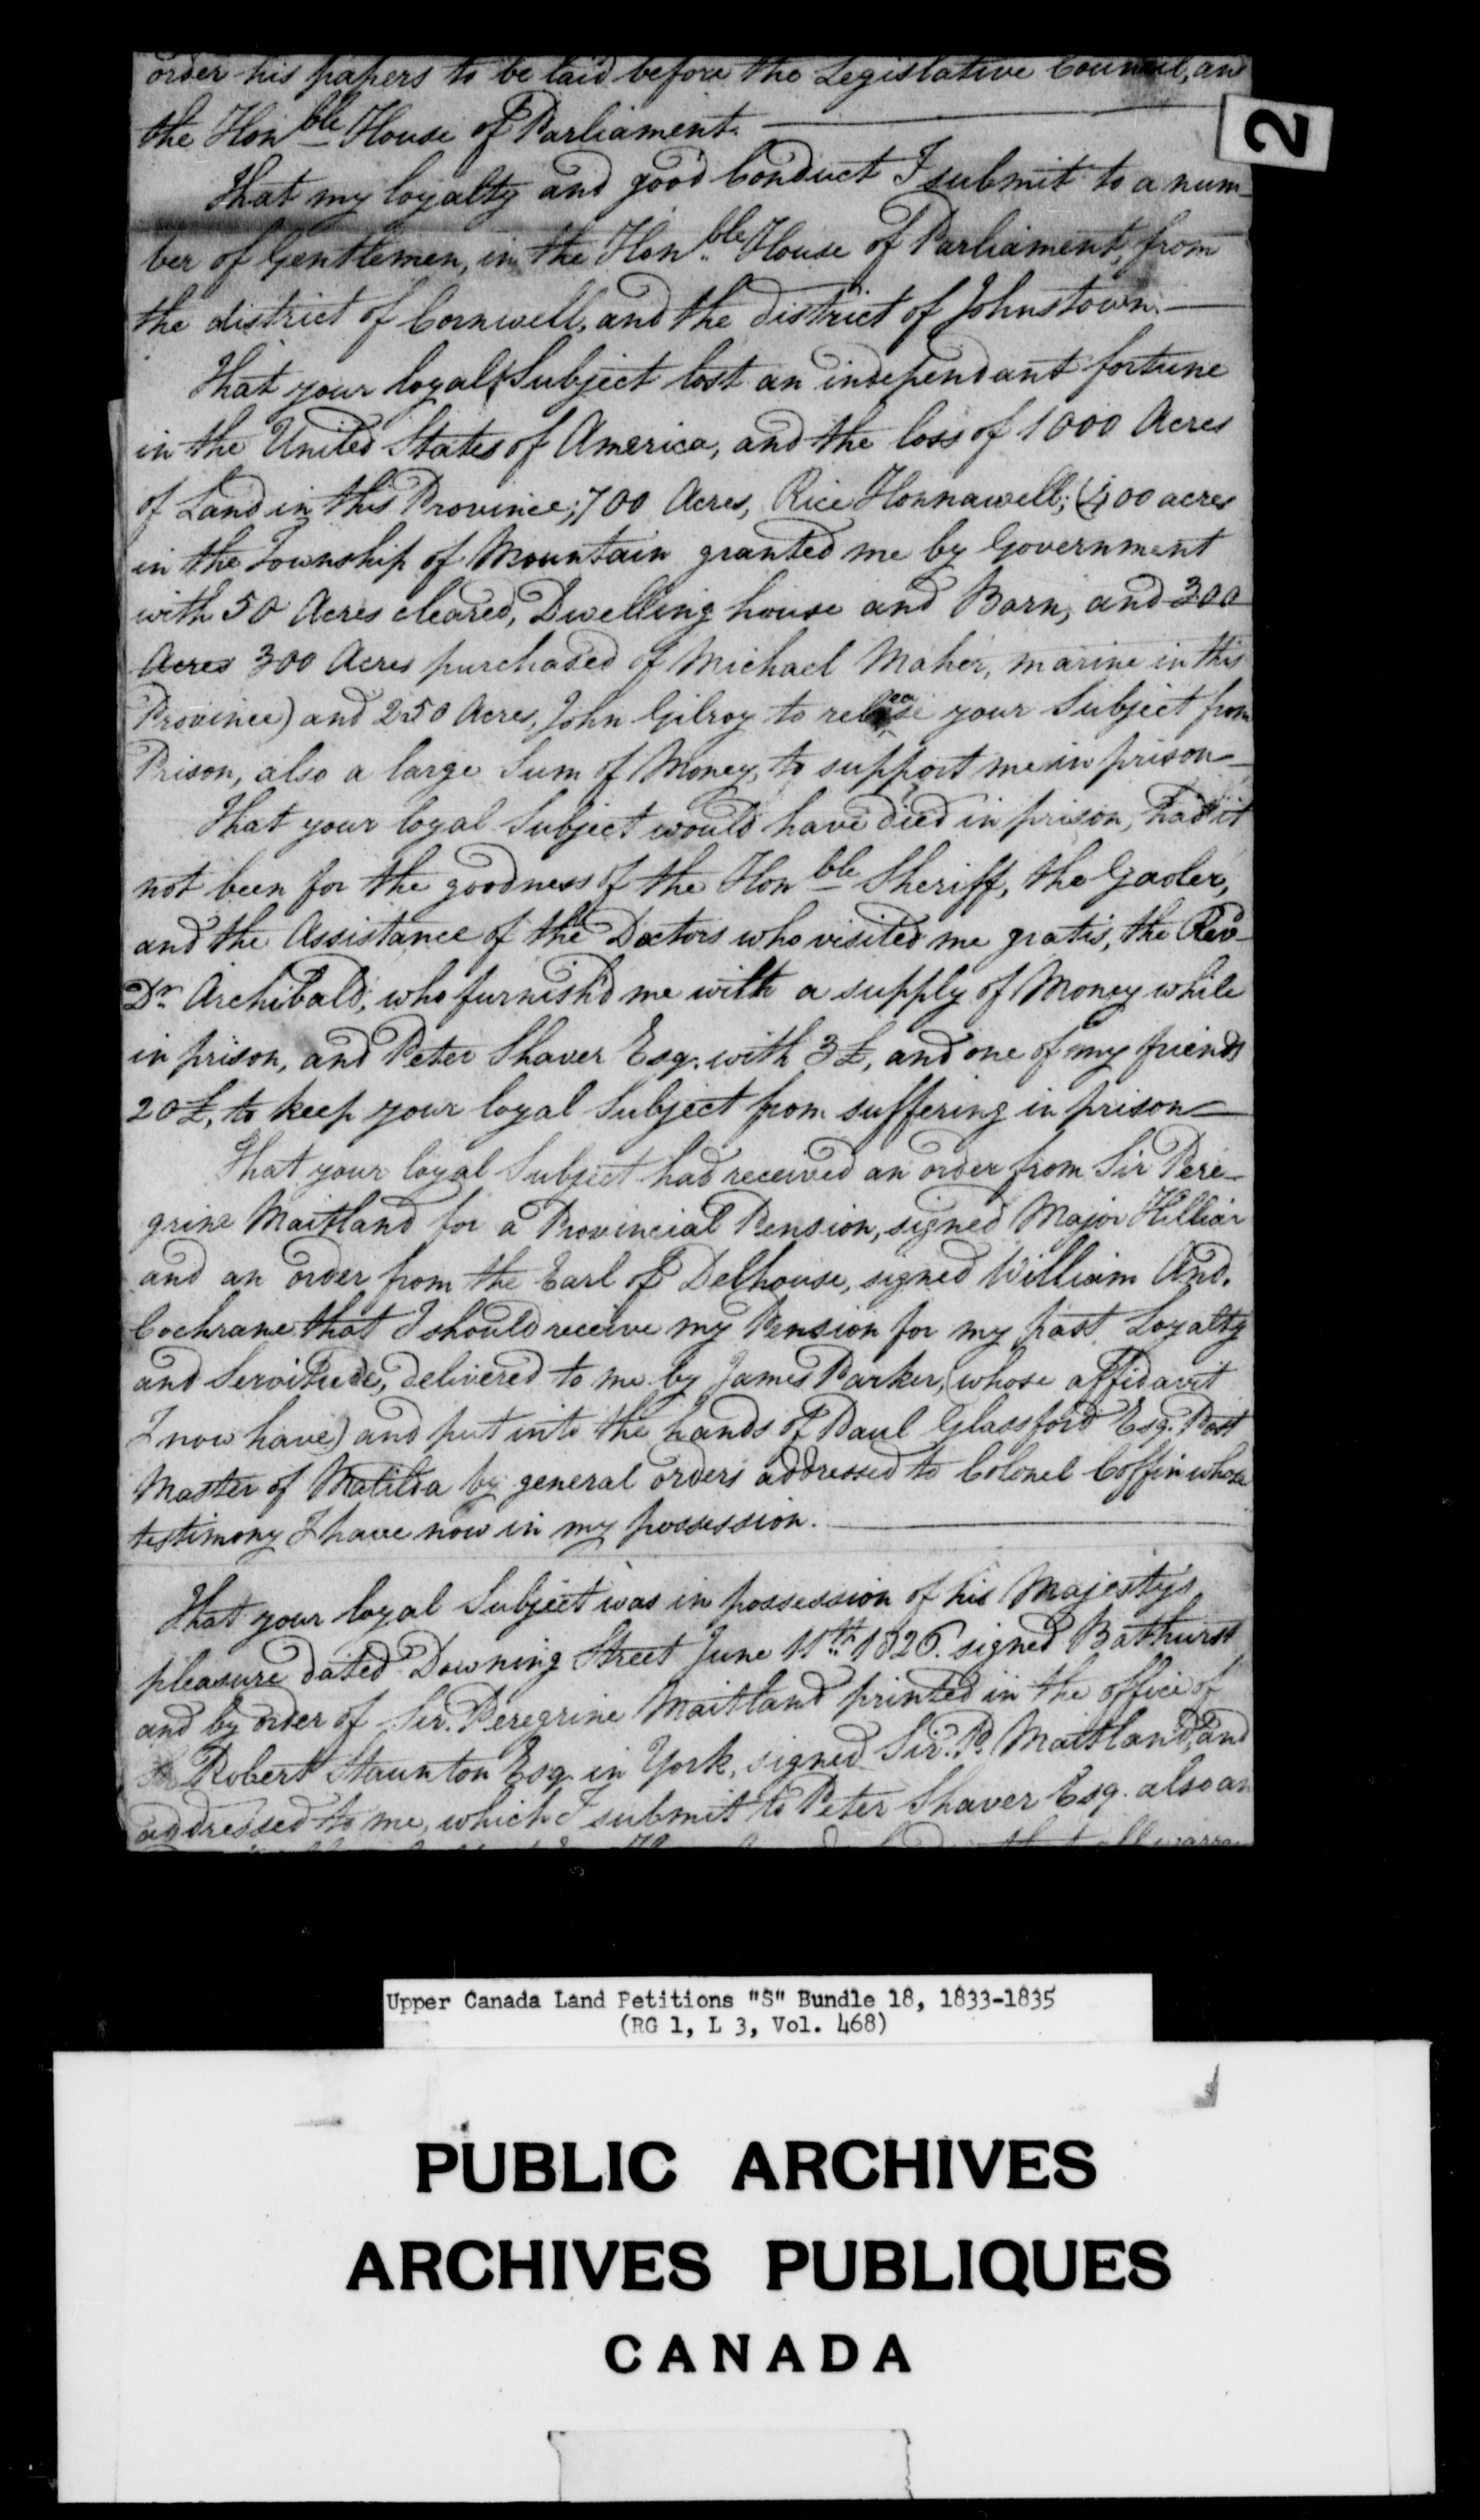 order his papers to be laid before the Legislative Council, an
the Honble House of Parliament.
2
That my loyalty and good Conduct I submit to a num-
ber of Gentlemen, in the Honble House of Parliament, from
the district of Cornwell, and the district of Johnstown.
That your loyal Subject lost an independant fortune
in the United States of America, and the loss of 1000 Acres
of Land in this Province; 700 Acres, Rice Honnawell; (400 acres
in the Township of Mountain granted me by Government
with 50 Acres cleared, Dwelling house and Barn, and 300
Acres 300 Acres purchased of Michael Maher, marine in this
Province) and 250 Acres, John Gilroy to release your Subject from
Prison, also a large Sum of Money, to support me in prison
That your loyal Subject would have died in prison, had it
not been for the goodness of the Honble Sheriff, the Gaoler,
and the Assistance of the Doctors who visited me gratis, the Revd
Dr Archibald, who furnish'd me with a supply of Money while
in prison, and Peter Shaver Esq. with 3£, and one of my friends
20£, to keep your loyal Subject from suffering in prison
That your loyal Subject had received an order from Sir Pere-
grine Maitland for a Provincial Pension, signed Major Hilliar
and an order from the Earl of Delhouse, signed William And.
Cochrane that I should receive my Pension for my past Loyalty
and Servitude, delivered to me by James Parker, (whose affidavit
I now have) and put into the hands of Paul Glassford Esq. Post
Master of Matilda by general orders addressed to Colonel Coffin whose
testimony I have now in my possession.
That your loyal Subject was in possession of his Majestys
pleasure dated Downing Street June 11th 1826. signed Bathurst
and by order of Sir Peregrine Maitland printed in the office of
Robert Staunton Esq. in York, signed Sir. P. Maitland, and
addressed to me, which I submit to Peter Shaver Esq. also an
Upper Canada Land Petitions "S" Bundle 18, 1833-1835
(RG 1, L 3, Vol. 468)
PUBLIC ARCHIVES
ARCHIVES PUBLIQUES
CANADA